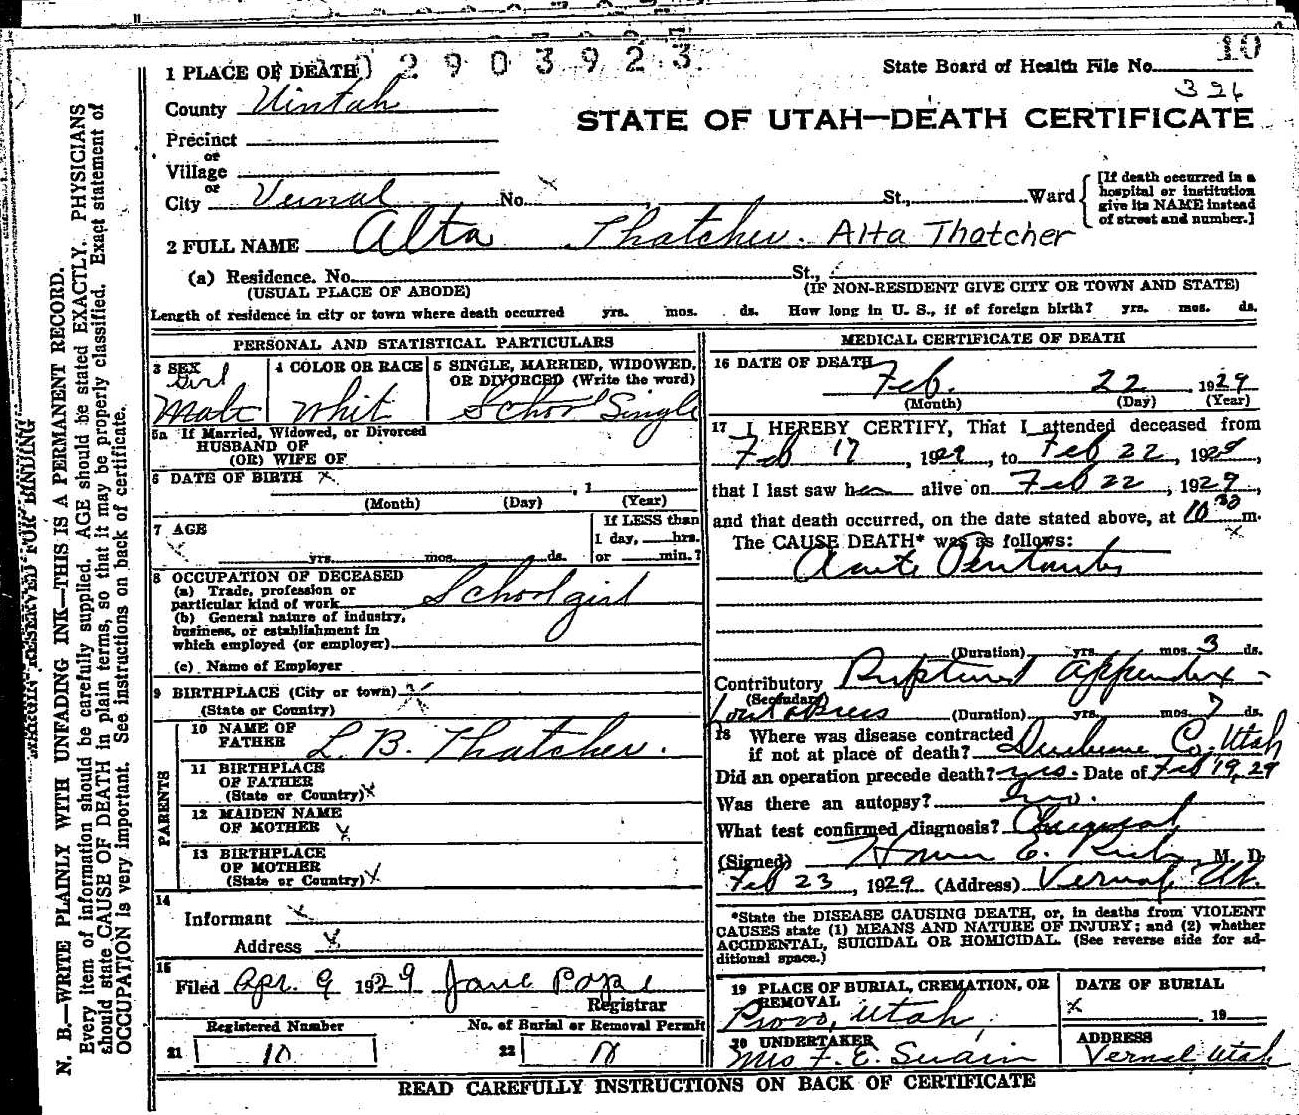 0 2 9 0 3 9 2 3
10
1 PLACE OF DEATH
State Board of Health File No.
326
County Uintah
STATE OF UTAH—DEATH CERTIFICATE
Precinct
or
Village
or
City Vernal No. x St., Ward
[If death occurred in a
hospital or institution
give its NAME instead
of street and number.]
2 FULL NAME Alta Thatcher. Alta Thatcher
(a) Residence. No. St.,
(USUAL PLACE OF ABODE) (IF NON-RESIDENT GIVE CITY OR TOWN AND STATE)
Length of residence in city or town where death occurred yrs. mos. ds. How long in U. S., if of foreign birth? yrs. mos. ds.
PERSONAL AND STATISTICAL PARTICULARS
3 SEX
Girl
Male
4 COLOR OR RACE
Whit
5 SINGLE, MARRIED, WIDOWED,
OR DIVORCED (Write the word)
School Single
5a If Married, Widowed, or Divorced
HUSBAND OF
(OR) WIFE OF
6 DATE OF BIRTH x , 1
(Month) (Day) (Year)
7 AGE
x
yrs. mos. ds.
If LESS than
1 day, hrs.
or min.?
8 OCCUPATION OF DECEASED
(a) Trade, profession or
particular kind of work Schoolgirl
(b) General nature of industry,
business, or establishment in
which employed (or employer)
(c) Name of Employer
9 BIRTHPLACE (City or town) x
(State or Country)
PARENTS
10 NAME OF
FATHER L. B. Thatcher.
11 BIRTHPLACE
OF FATHER
(State or Country) x
12 MAIDEN NAME
OF MOTHER x
13 BIRTHPLACE
OF MOTHER
(State or Country) x
14
Informant x
Address x
15
Filed Apr. 9 1929 Jane Pope
Registrar
Registered Number No. of Burial or Removal Permit
21 10 22
MEDICAL CERTIFICATE OF DEATH
16 DATE OF DEATH
Feb. 22 1929
(Month) (Day) (Year)
17 I HEREBY CERTIFY, That I attended deceased from
Feb 17, 1929, to Feb 22, 1929,
that I last saw her alive on Feb 22, 1929,
and that death occurred, on the date stated above, at 10 30 m.
x
The CAUSE DEATH* was as follows:
Acute Peritonitis
(Duration) yrs. mos. 3 ds.
Contributory Ruptured appendix -
(Secondary)
(Duration) yrs. mos. 7 ds.
18 Where was disease contracted
if not at place of death? Duchesne Co. Utah
Did an operation precede death? yes. Date of Feb 19, 29
Was there an autopsy? no.
What test confirmed diagnosis? Surgical
(Signed) Homer E. M. D.
Feb 23, 1929 (Address) Vernal, Ut.
*State the DISEASE CAUSING DEATH, or, in deaths from VIOLENT
CAUSES state (1) MEANS AND NATURE OF INJURY; and (2) whether
ACCIDENTAL, SUICIDAL OR HOMICIDAL. (See reverse side for ad-
ditional space.)
19 PLACE OF BURIAL, CREMATION, OR
REMOVAL
Provo, Utah
DATE OF BURIAL
x 19
20 UNDERTAKER
Mrs F. E. Swain
ADDRESS
Vernal Utah
READ CAREFULLY INSTRUCTIONS ON BACK OF CERTIFICATE
RESERVED FOR BINDING
N. B.—WRITE PLAINLY WITH UNFADING INK—THIS IS A PERMANENT RECORD.
Every item of information should be carefully supplied. AGE should be stated EXACTLY. PHYSICIANS
should state CAUSE OF DEATH in plain terms, so that it may be properly classified. Exact statement of
OCCUPATION is very important. See instructions on back of certificate.